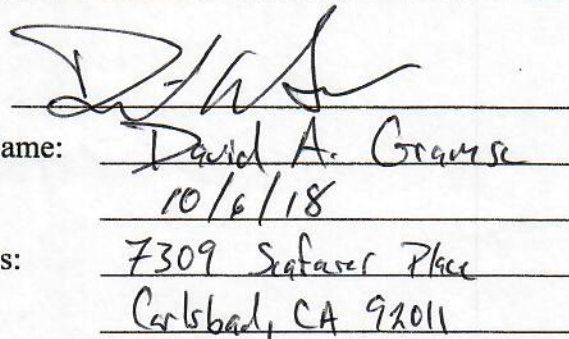 ame: David A. Gramse
10/6/18
s: 7309 Seafarer Place
Carlsbad, CA 92011